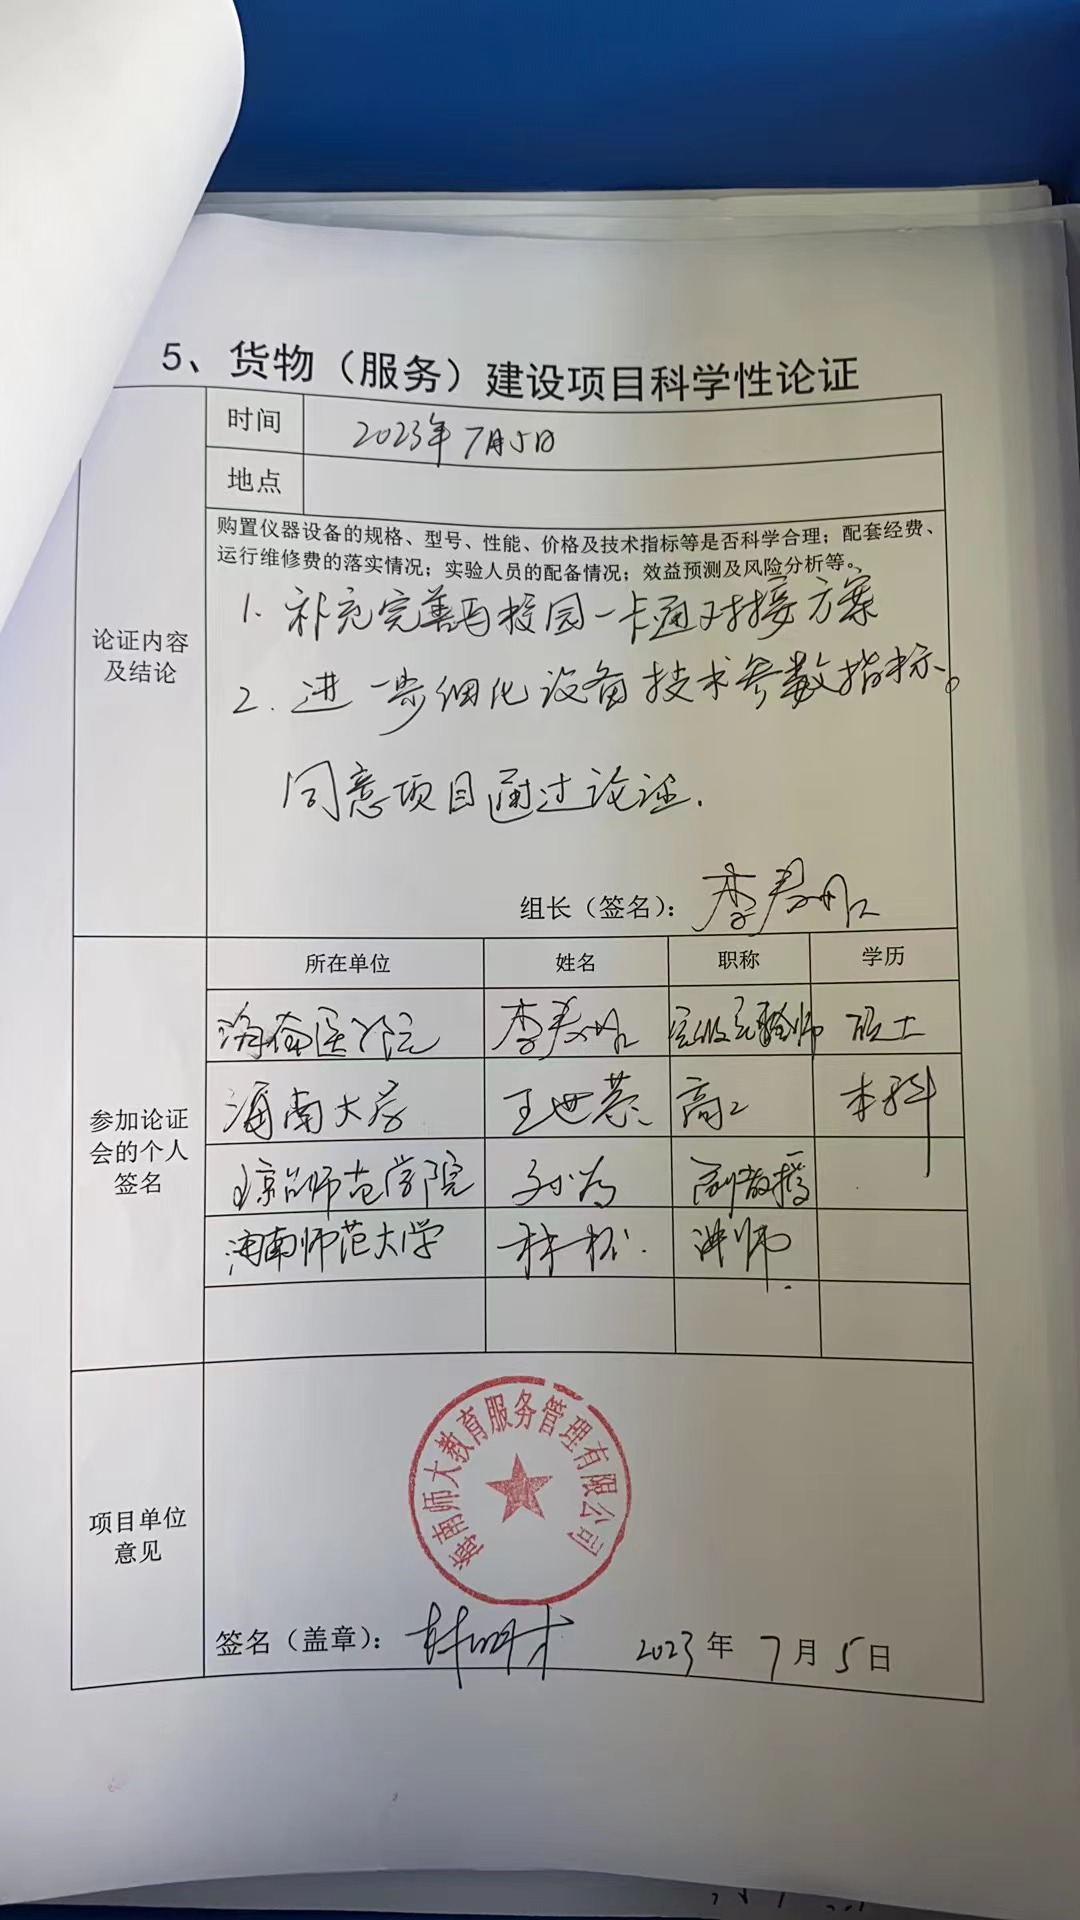 5、货物（服务）建设项目科学性论证
时间 2023年7月5日
地点
论证内容及结论
购置仪器设备的规格、型号、性能、价格及技术指标等是否科学合理；配套经费、
运行维修费的落实情况；实验人员的配备情况；效益预测及风险分析等。
1. 补充完善与校园一卡通对接方案
2. 进一步细化设备技术参数指标。
同意项目通过论证.
组长（签名）： 李
参加论证会的个人签名
所在单位 姓名 职称 学历
海南医学院 李 高级实验师 硕士
海南大学 王世 高工 本科
琼台师范学院 副教授
海南师范大学 林松 讲师
项目单位意见
海南师大教育服务管理有限公司
签名（盖章）： 2023年7月5日